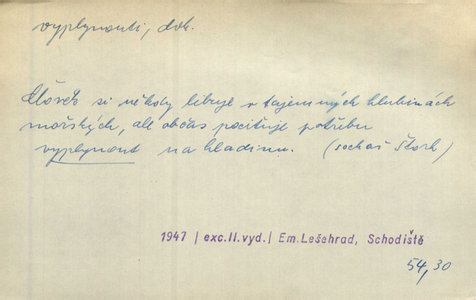 vyplynouti, dok.
Člověk si někdy libuje v tajemných hlubinách
mořských, ale občas pociťuje potřebu
vyplynout na hladinu. (sochař Štork)
1947 | exc. II. vyd. | Em. Lešehrad, Schodiště
54,30